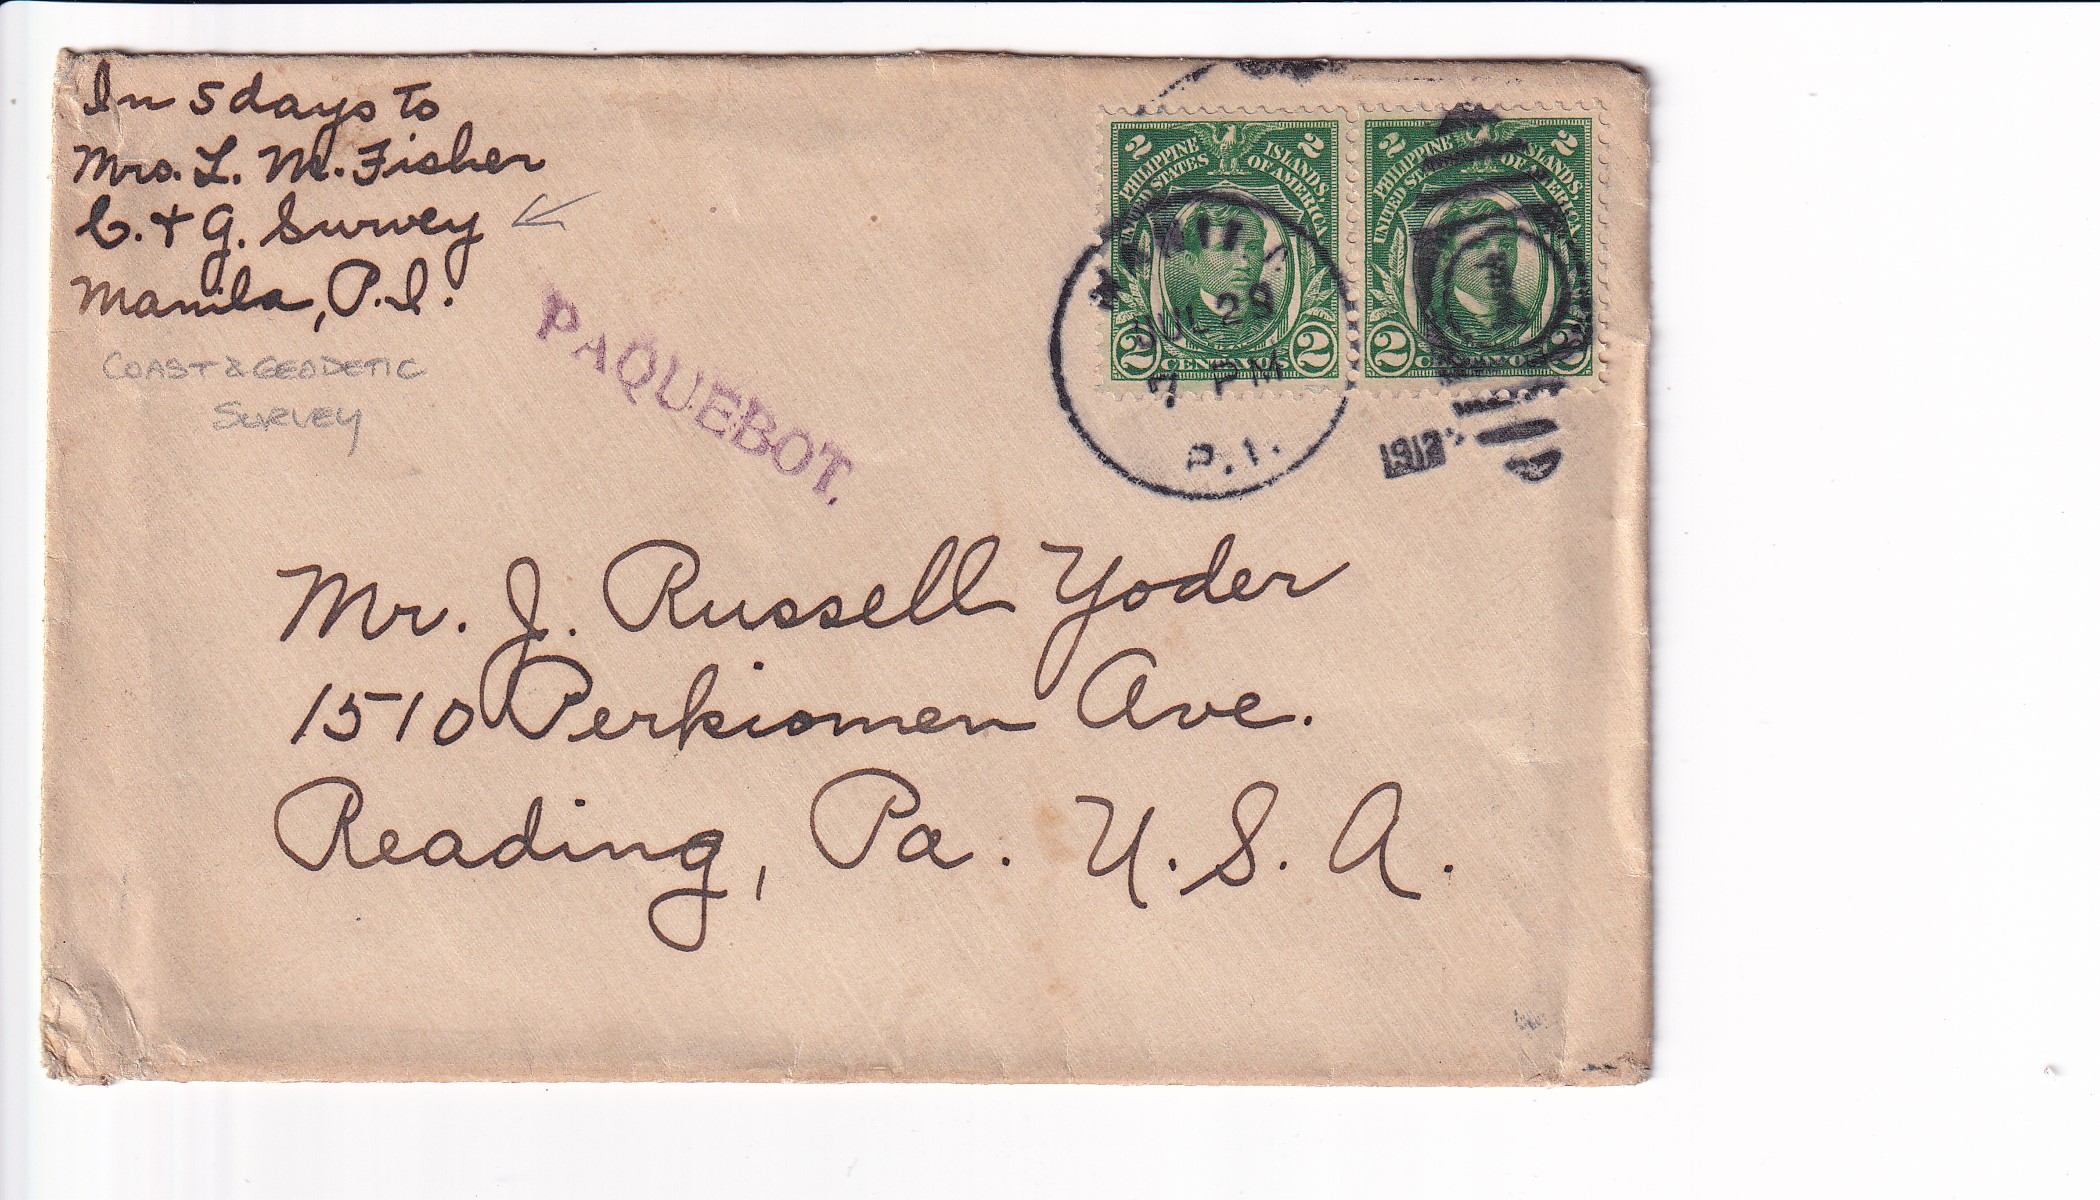 In 5 days to
Mrs. L. M. Fisher
C. & G. Survey
Manila, P.I.
COAST & GEODETIC
SURVEY
PAQUEBOT.
2 2
PHILIPPINE ISLANDS
UNITED STATES OF AMERICA
2 CENTAVOS 2
2 2
PHILIPPINE ISLANDS
UNITED STATES OF AMERICA
2 CENTAVOS 2
MANILA
JUL 28
7 PM
P.I.
1912
Mr. J. Russell Yoder
1510 Perkiomen Ave.
Reading, Pa. U.S.A.